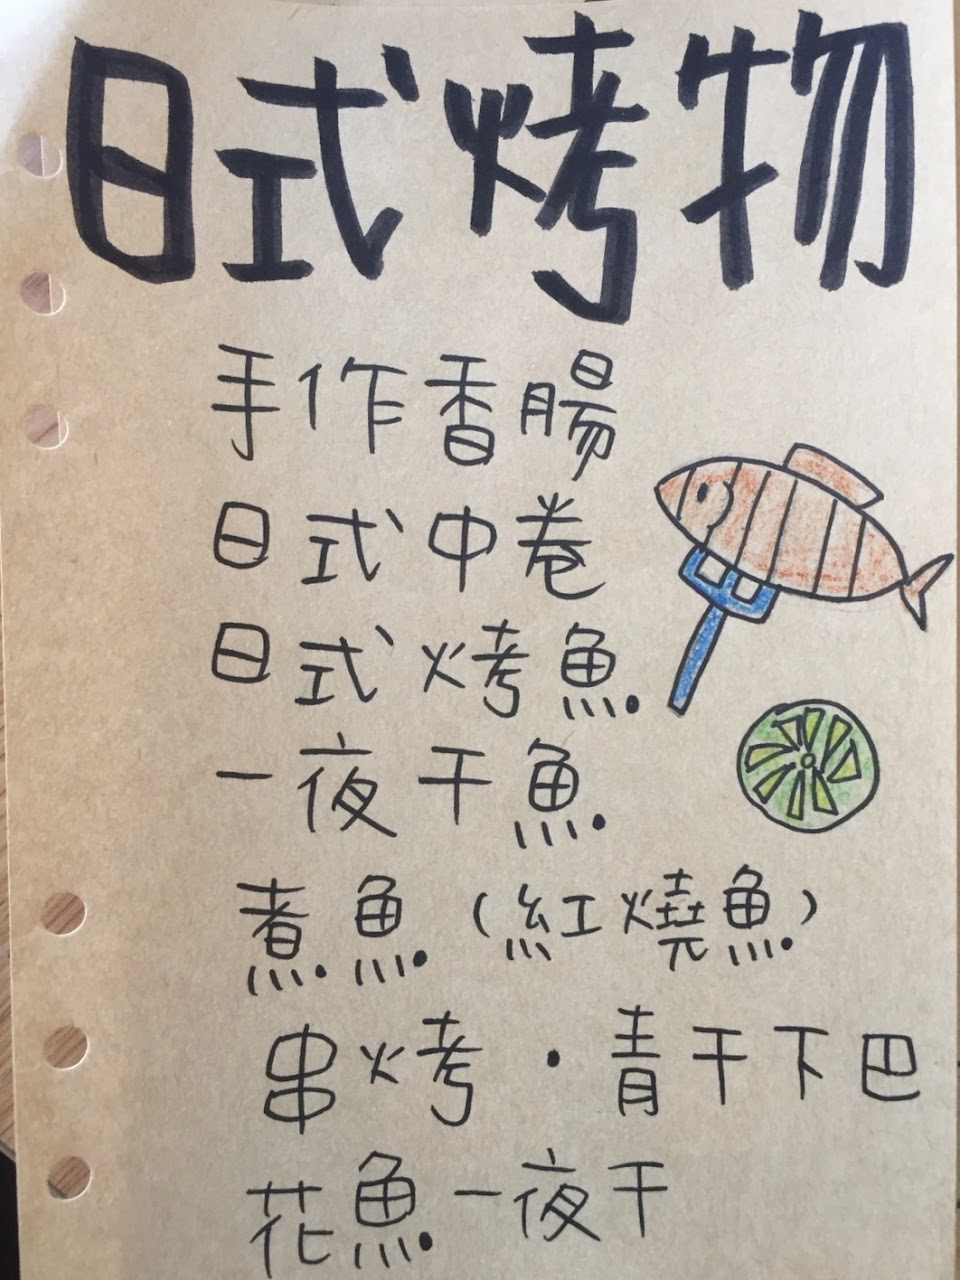 日式烤物
手作香腸
日式中卷
日式烤魚
一夜干魚
煮魚(紅燒魚)
串烤·青干下巴
花魚一夜干